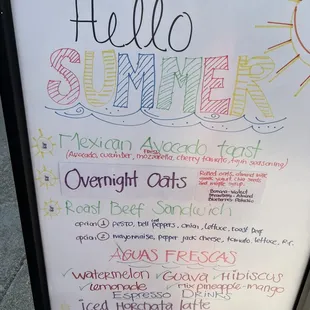 Hello
SUMMER
Mexican Avocado toast
(Avocado, cucumber, fresh mozzarella, cherry tomato, tajin seasoning)
Overnight Oats
Rolled oats, almond milk
and maple syrup
Banana-Walnut
Strawberry-Almond
Roast Beef Sandwich
option ① pesto, bell peppers, onion, lettuce, roast beef
option ② mayonnaise, pepper jack cheese, tomato, lettuce, r.
AGUAS FRESCAS
watermelon Guava Hibiscus
lemonade pineapple-mango
Espresso Drinks
iced Horchata latte